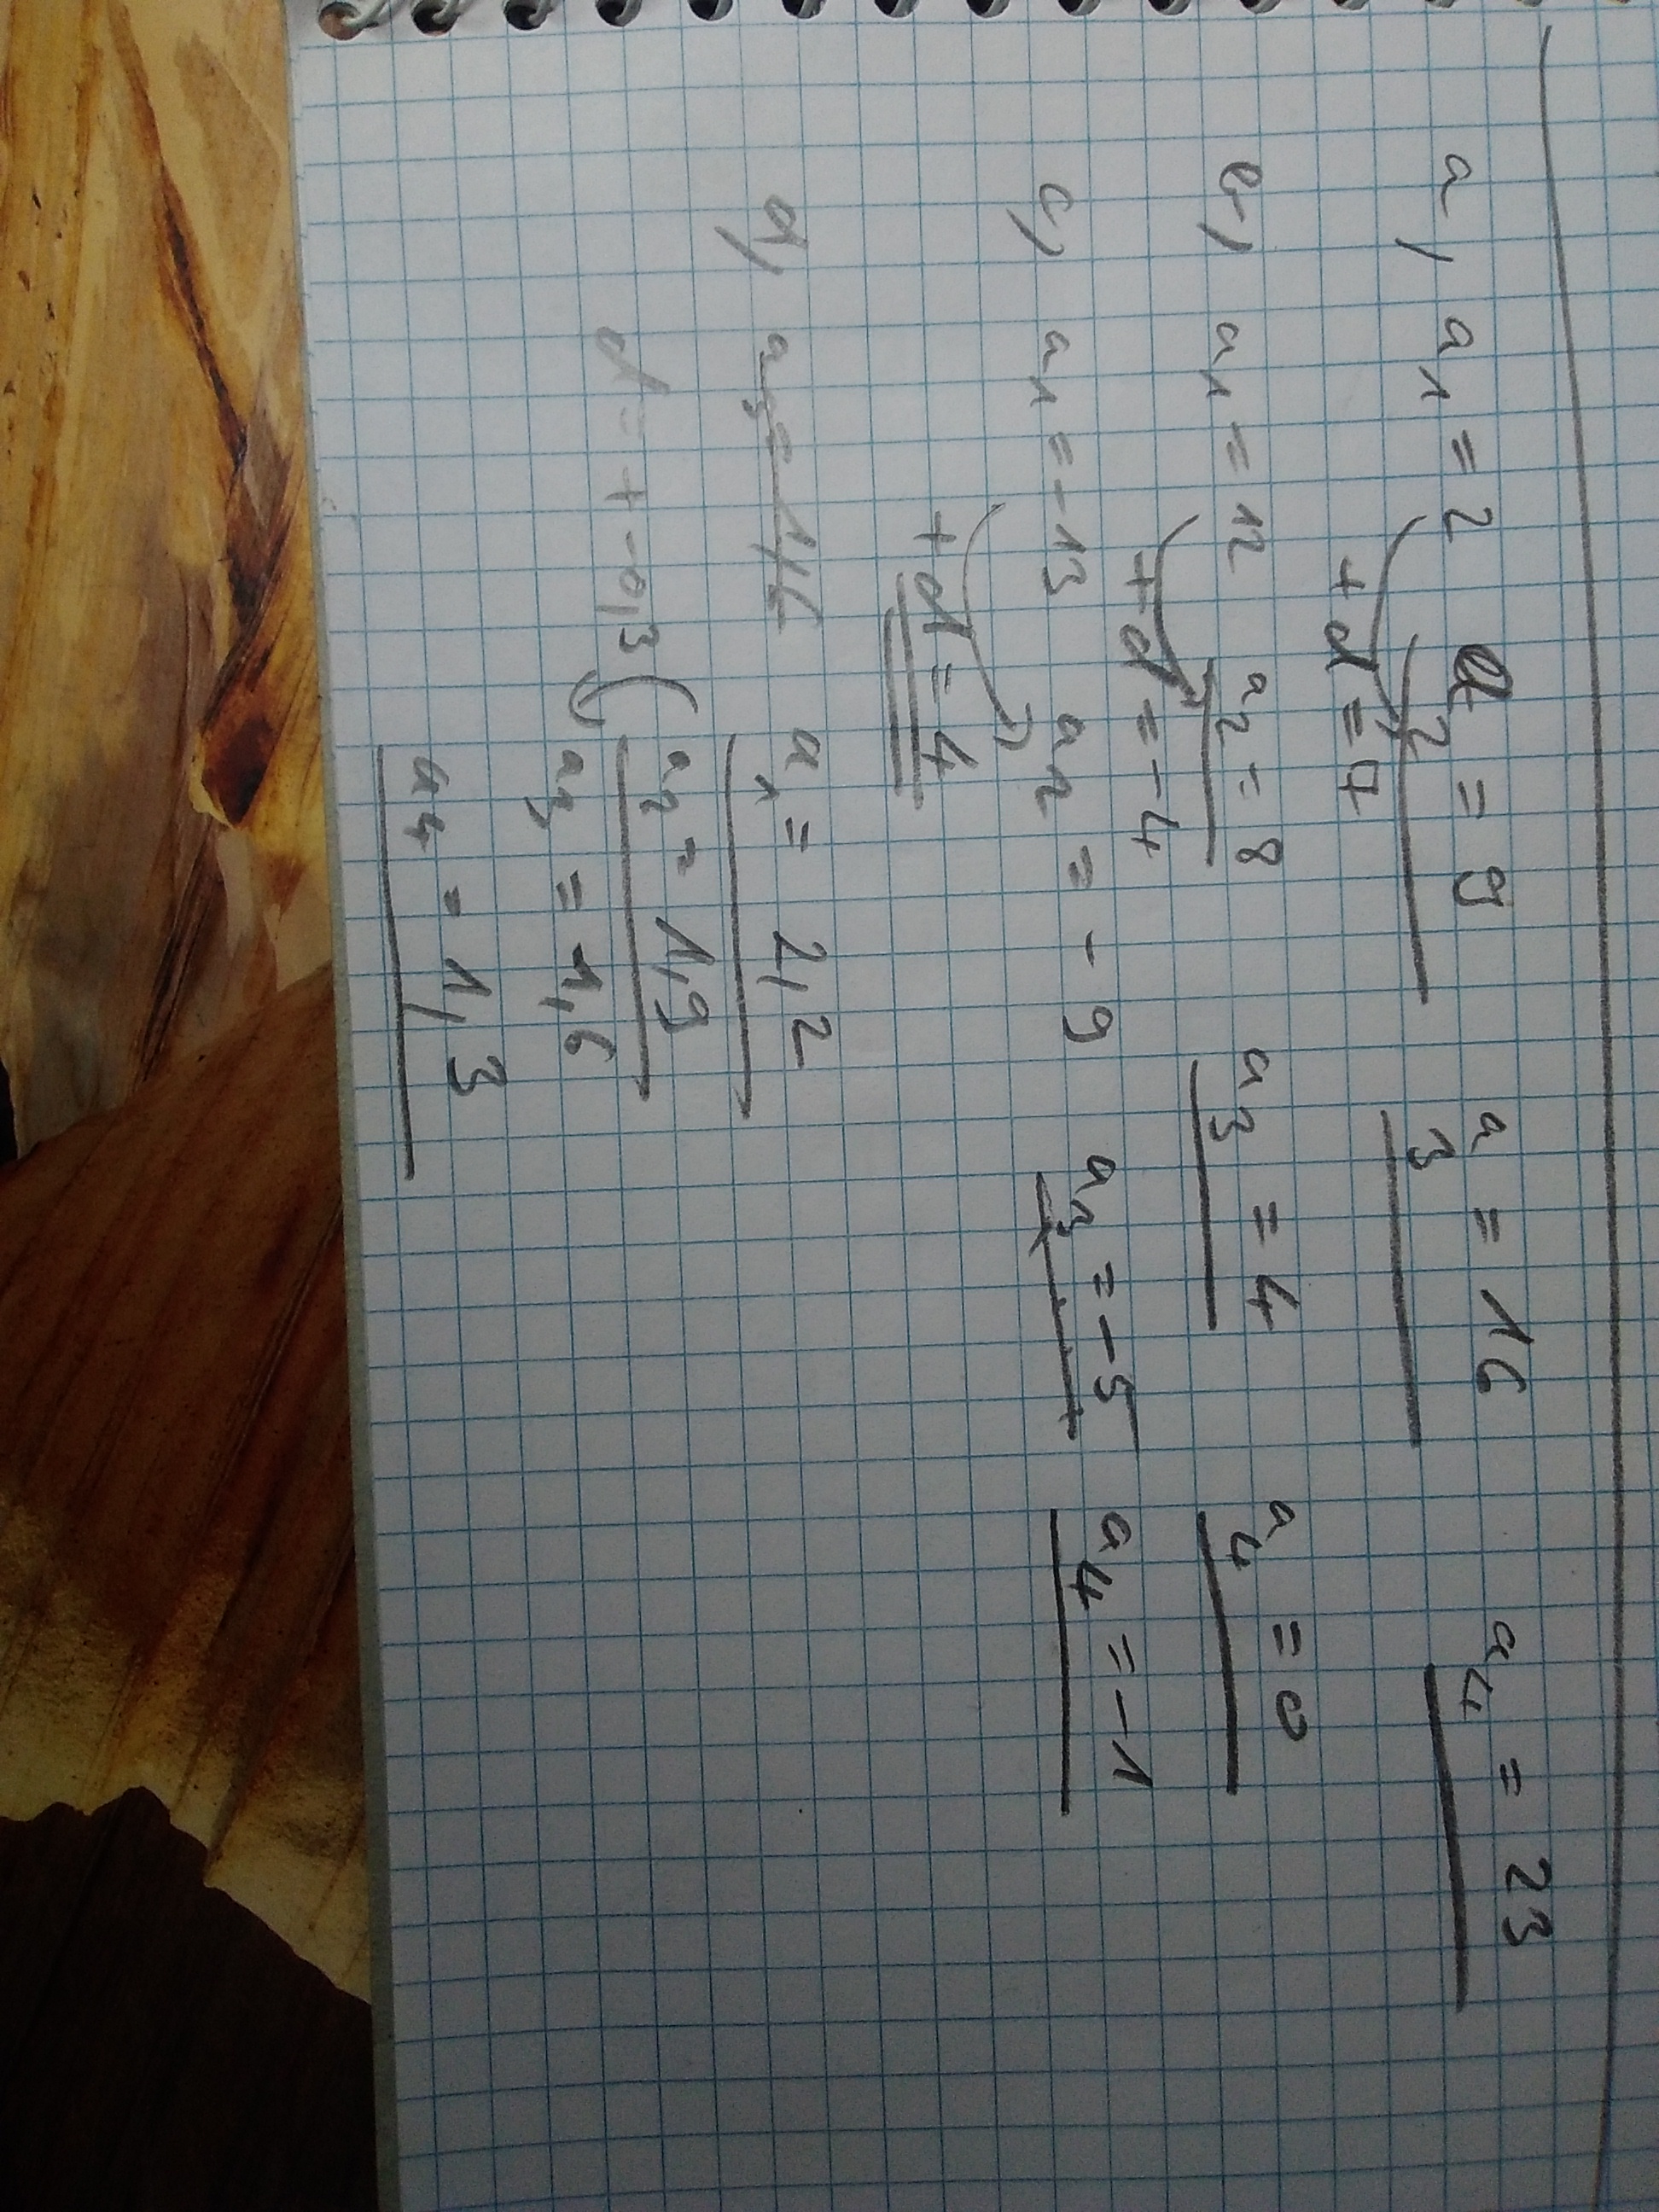 a, a1 = 2 a2 = 9 a3 = 16 a4 = 23
+d = 7
b, a1 = 12 a2 = 8 a3 = 4 a4 = 0
+d = -4
c, a1 = -13 a2 = -9 a3 = -5 a4 = -1
+d = 4
d, a3 = 1,6 a1 = 2,2
d = + -0,3 a2 = 1,9
a3 = 1,6
a4 = 1,3